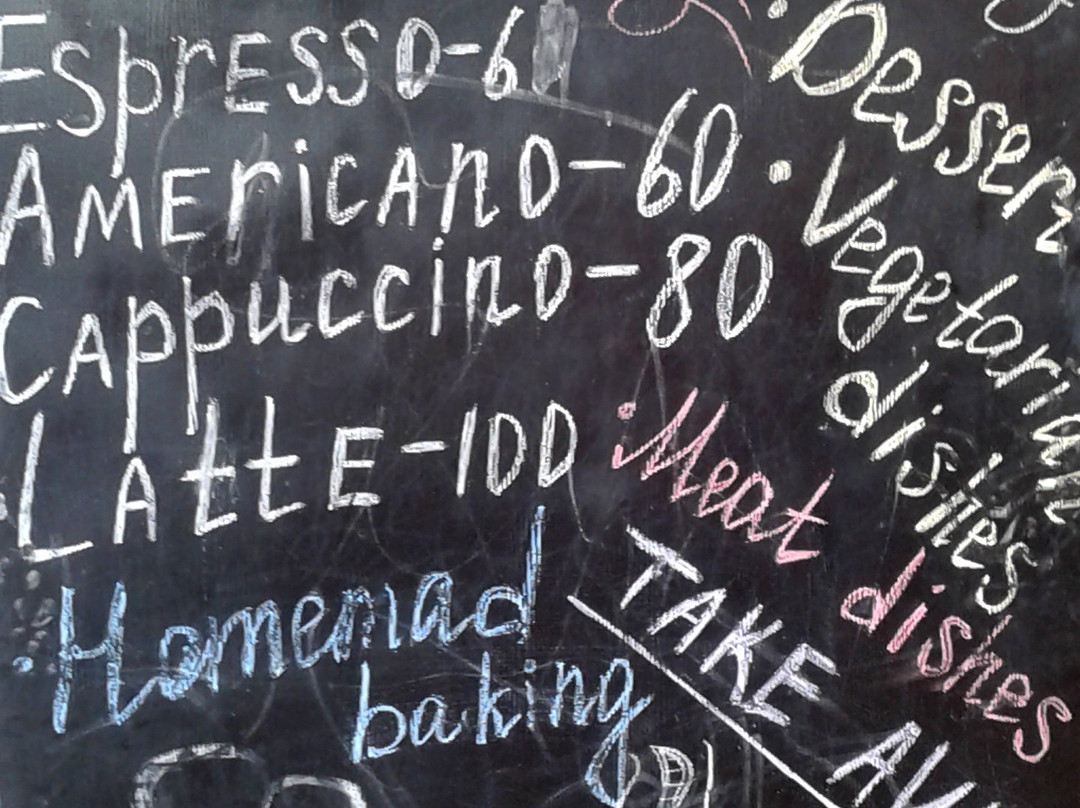 Espresso-6
Americano-60
Cappuccino-80
Latte-100
· Homemad
baking
· Dessert
· Vegetarian
dishes
· Meat dishes
TAKE AW